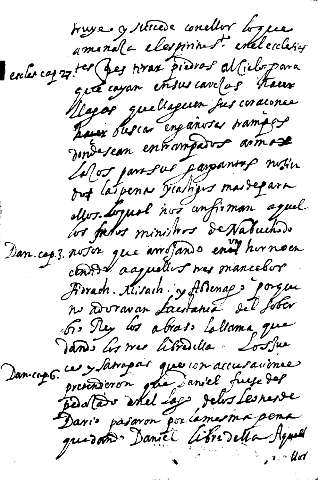 truye y sucede con ellos lo que
amenaza el espiritu st. en el eclesias
eccles cap. 27.
tes Que es tirar piedras al Cielo para
que cayan en sus caveças hacer
llagas que llaguen sus coraçones
buscar engañosas trampas
donde sean entrampados armar
laços para sus gargantas no sien
do la pena y castigos mas de para
ellos. Lo qual nos confirman aquel
los ministros de Nabuchodo
Dan. cap. 3.
nosor que arrojando en un horno en
cendido a aquellos tres mancebos
Sidrach. Misach. y Abdenago porque
no adoravan la estatua del sober
bio Rey los abraso la llama que
dando los tres libres della. Los
Dan. cap. 6.
y Satrapas que con acusaciones
pretendieron que Daniel fuese des
pedaçado en el lago de los Leones de
Dario pasaron por la mesma pena
quedando Daniel libre della Aquell